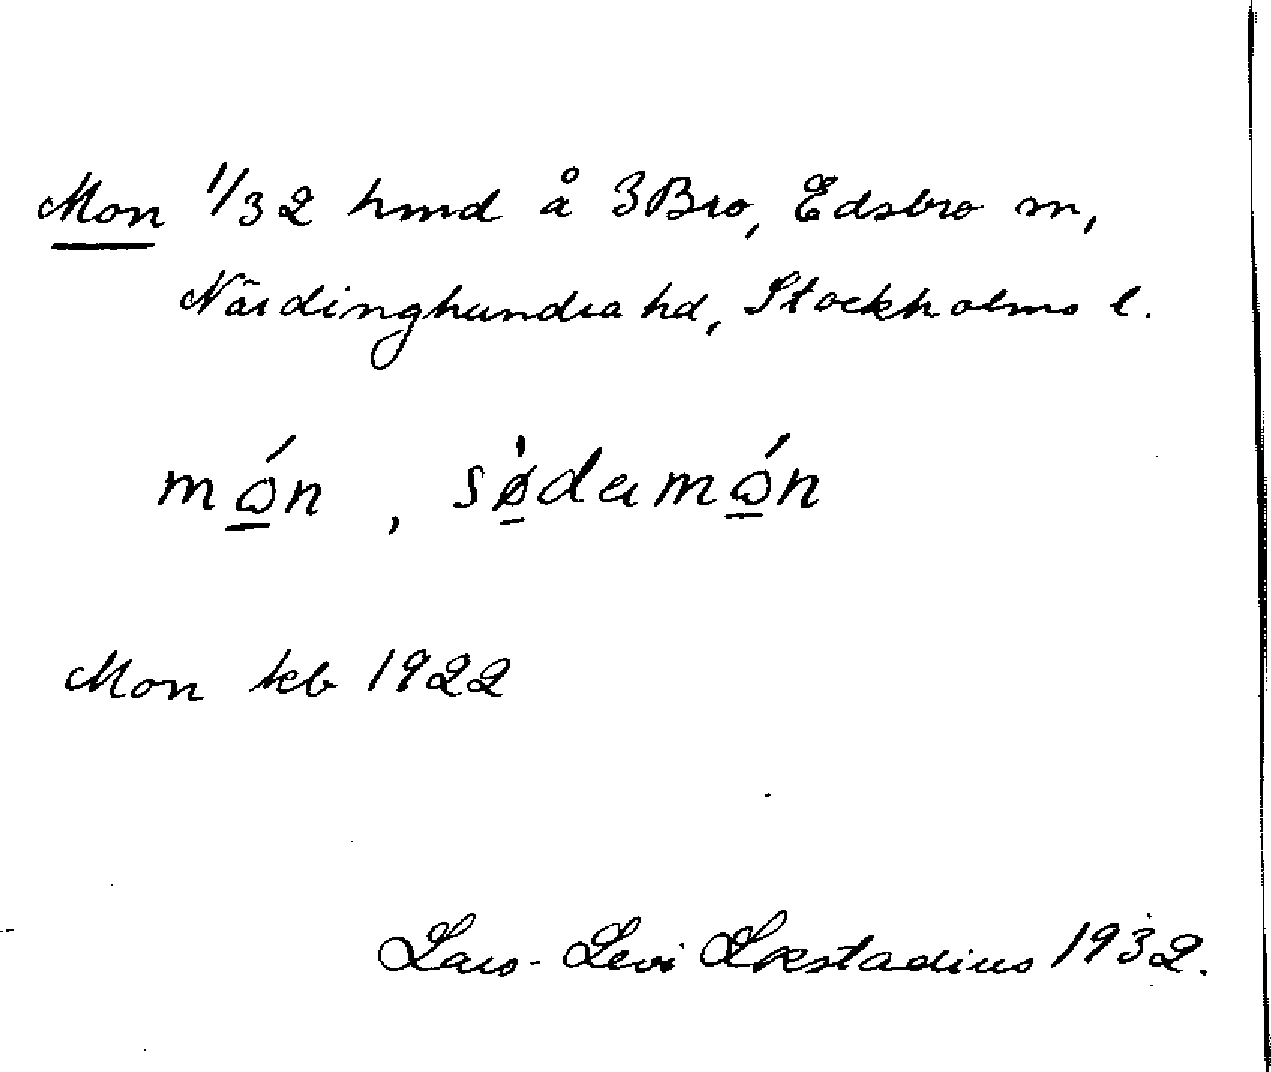 Mon 1/32 hmd å 3 Bro, Edsbro sn,
Närdinghundra hd, Stockholms l.
mǫ́n, sø̀damǫ́n
Mon kb 1922
Lars-Levi Læstadius 1932.